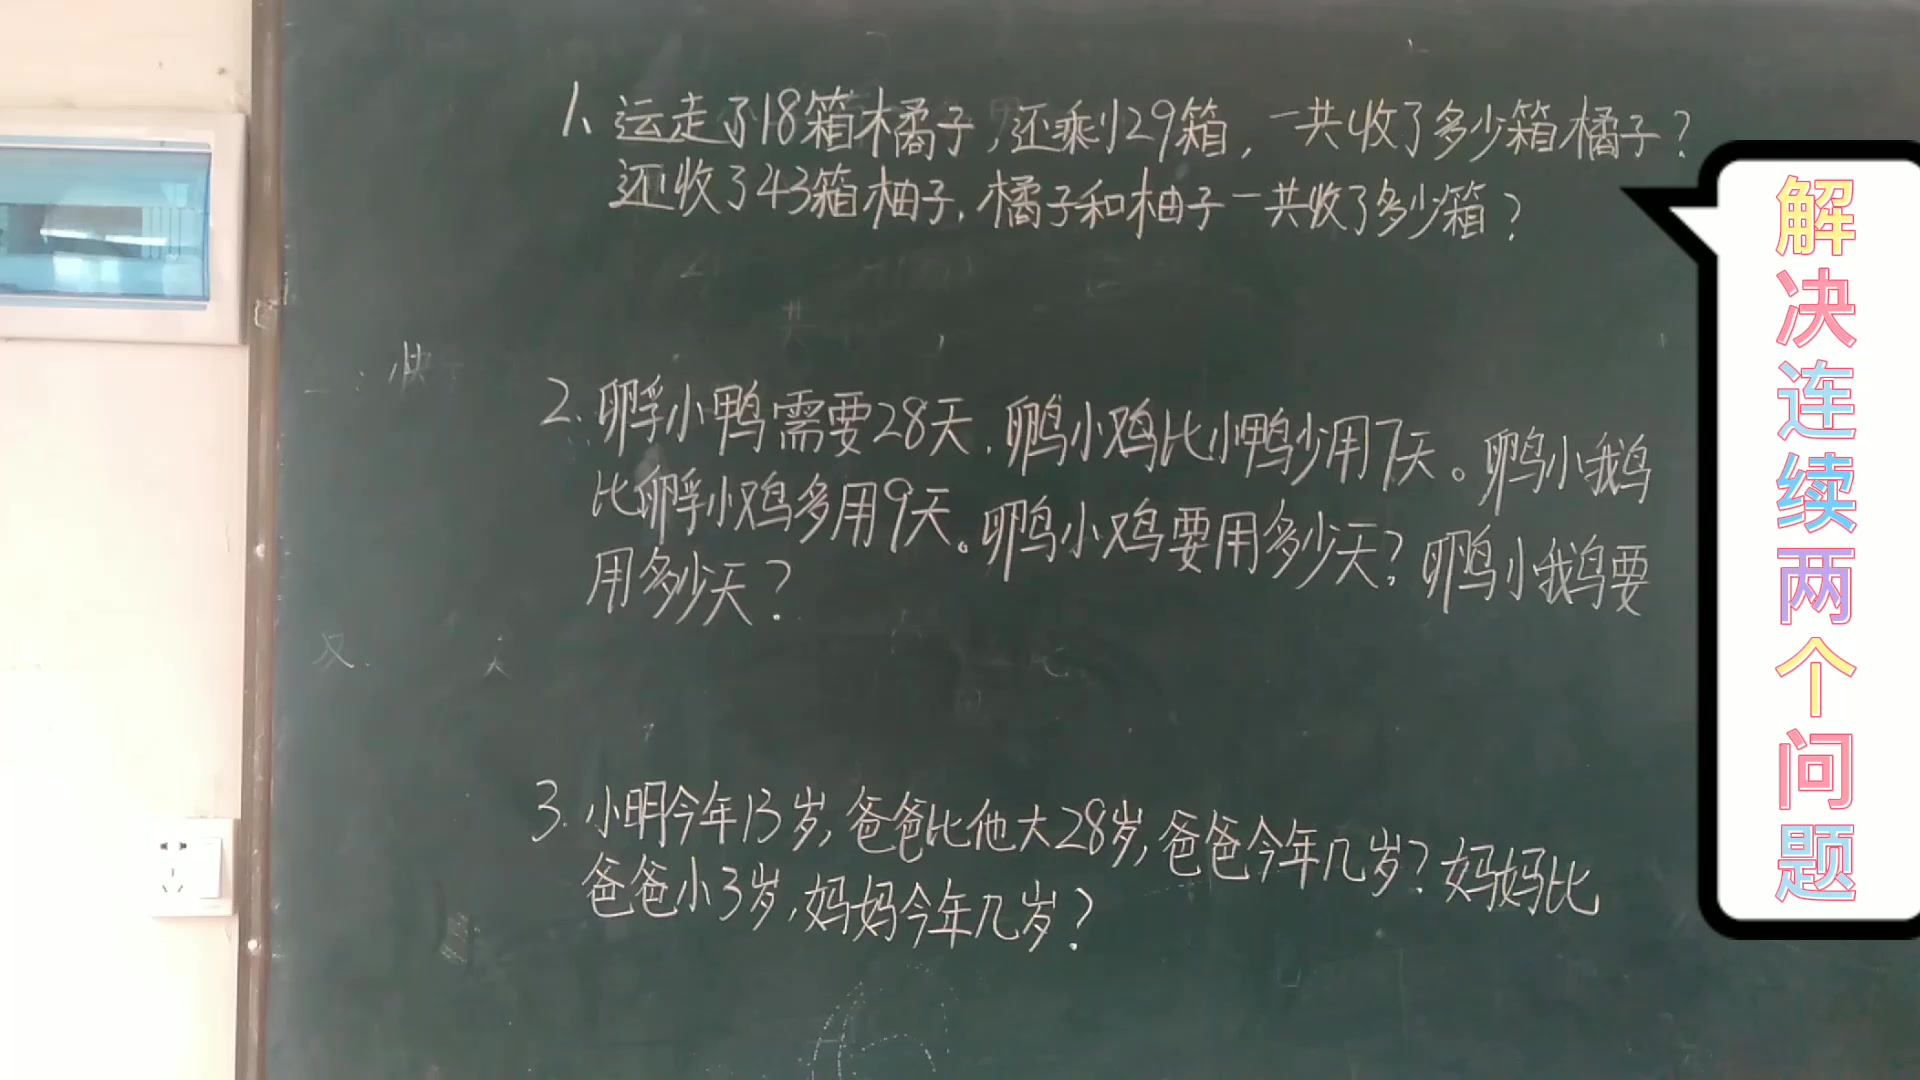 1、运走了18箱橘子,还剩29箱,一共收了多少箱橘子?
还收了43箱柚子,橘子和柚子一共收了多少箱?
2.孵小鸭需要28天,孵小鸡比小鸭少用7天。孵小鹅
比孵小鸡多用9天。孵小鸡要用多少天?孵小鹅要
用多少天?
3.小明今年13岁,爸爸比他大28岁,爸爸今年几岁?妈妈比
爸爸小3岁,妈妈今年几岁?
解决连续两个问题